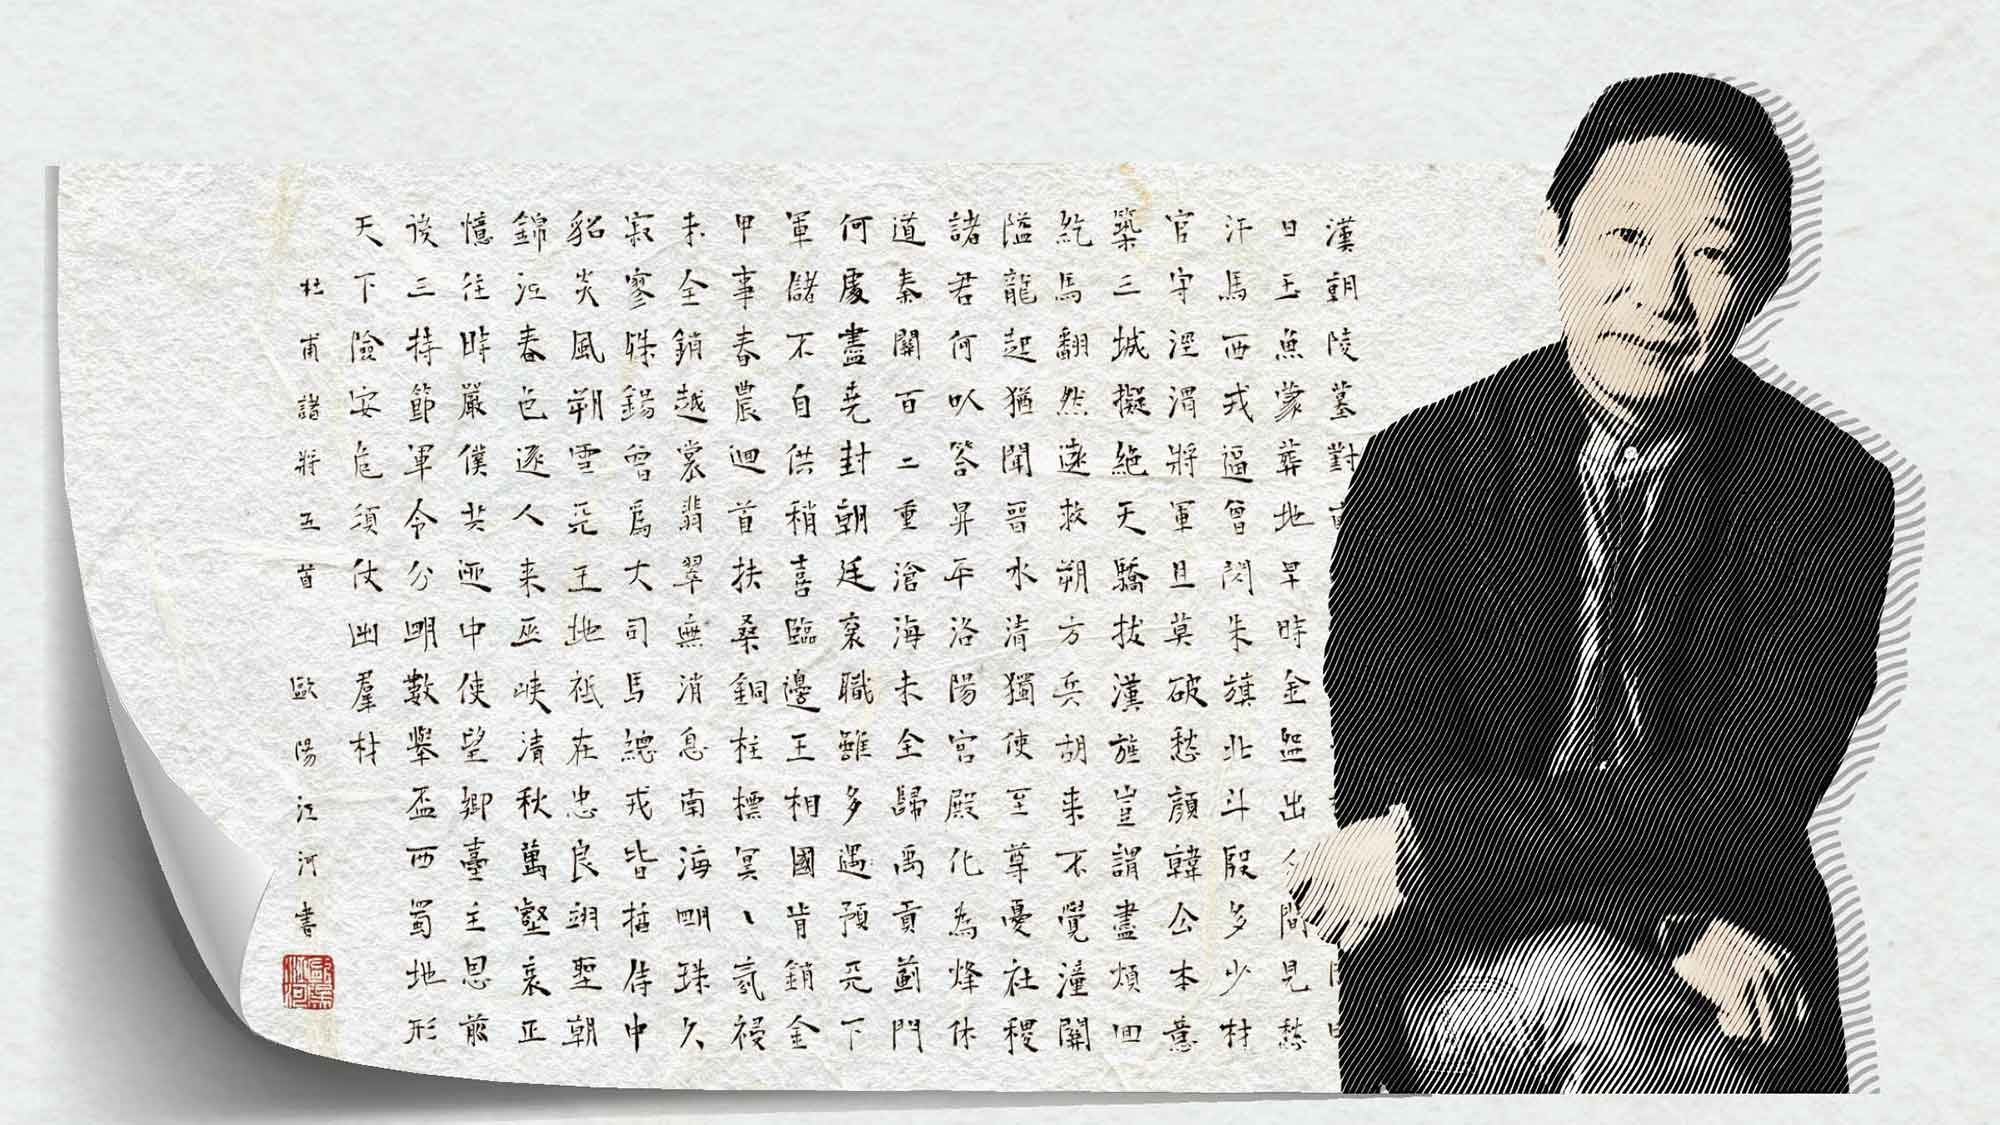 漢朝陵墓對
日玉魚蒙葬地早時金盌出人間見愁
汗馬西戎逼曾閃朱旗北斗殷多少材
官守涇渭將軍且莫破愁顏韓公本意
築三城擬絕天驕拔漢旌豈謂盡煩回
紇馬翻然遠救朔方兵胡来不覺潼關
隘龍起猶聞晉水清獨使至尊憂社稷
諸君何以答昇平洛陽宮殿化為烽休
道秦關百二重滄海未全歸禹貢薊門
何處盡堯封朝廷袞職雖多遇預天下
軍儲不自供稍喜臨邊王相國肯銷金
甲事春農迴首扶桑銅柱標冥丶氛祲
未全銷越裳翡翠無消息南海明珠久
寂寥殊錫曾爲大司馬總戎皆插侍中
貂炎風朔雪天王地祗在忠良翊聖朝
錦江春色逐人来巫峽清秋萬壑哀正
憶往時嚴僕共迎中使望鄉臺主恩前
後三持節軍令分明數舉盃西蜀地形
天下險安危須仗出羣材
杜甫諸將五首 歐陽江河書
歐陽江河